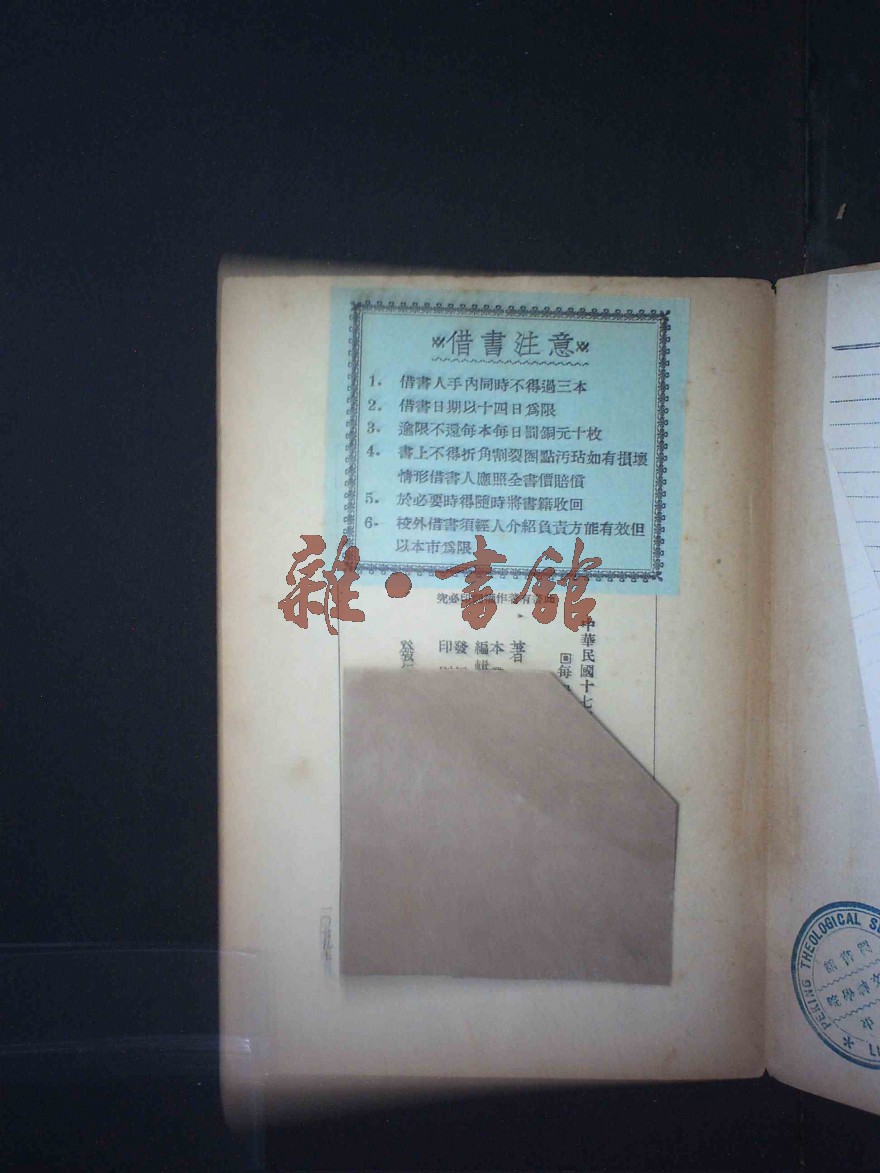 借書注意
1. 借書人手內同時不得過三本
2. 借書日期以十四日爲限
3. 逾限不還每本每日罰銅元十枚
4. 書上不得折角割裂圈點污玷如有損壞
情形借書人應照全書價賠償
5. 於必要時得隨時將書籍收回
6. 校外借書須經人介紹負責方能有效但
以本市爲限
雜·書館
究必印
有著作
中華民國十七
每
著
本
編輯
發
印
PEKING THEOLOGICAL S